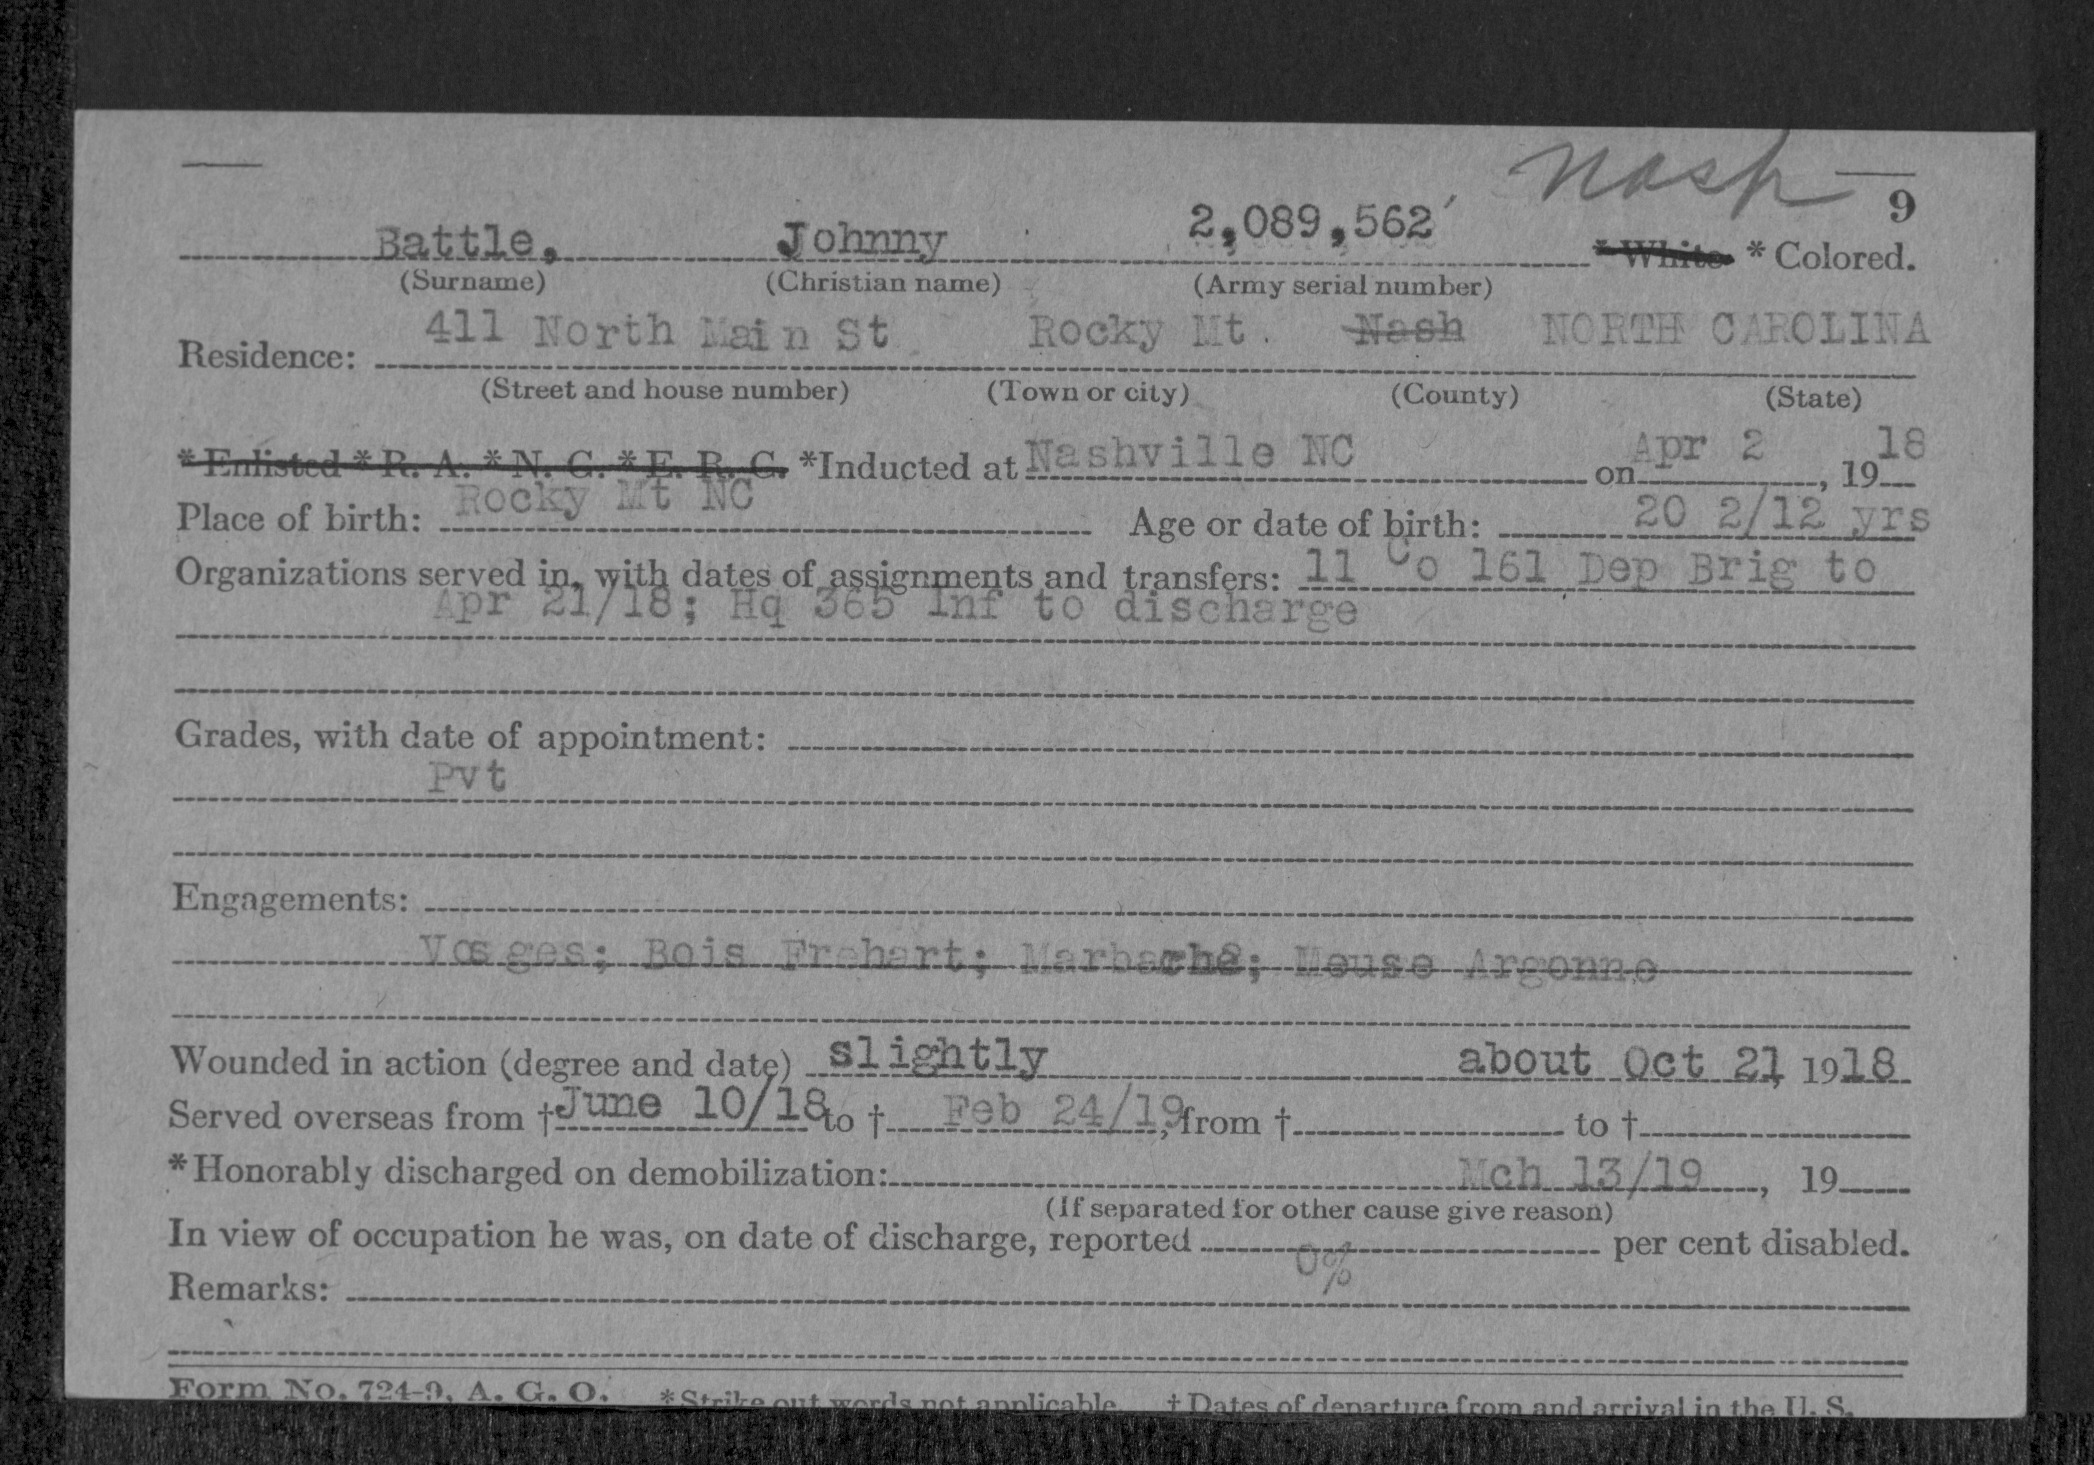 Nash
9
Battle, Johnny 2,089,562 * White * Colored.
(Surname) (Christian name) (Army serial number)
411 North Main St Rocky Mt. Nash NORTH CAROLINA
Residence:
(Street and house number) (Town or city) (County) (State)
* Enlisted * R. A. * N. G. * E. R. C. *Inducted at Nashville NC on Apr 2, 1918
Place of birth: Rocky Mt NC Age or date of birth: 20 2/12 yrs
Organizations served in, with dates of assignments and transfers: 11 Co 161 Dep Brig to
Apr 21/18; Hq 365 Inf to discharge
Grades, with date of appointment:
Pvt
Engagements:
Vosges; Bois Frehart; Marbache; Meuse Argonne
Wounded in action (degree and date) slightly about Oct 21, 1918
Served overseas from † June 10/18 to † Feb 24/19, from † to †
*Honorably discharged on demobilization: Mch 13/19, 19
(If separated for other cause give reason)
In view of occupation he was, on date of discharge, reported 0% per cent disabled.
Remarks:
Form No. 724-9, A. G. O. *Strike out words not applicable. † Dates of departure from and arrival in the U. S.